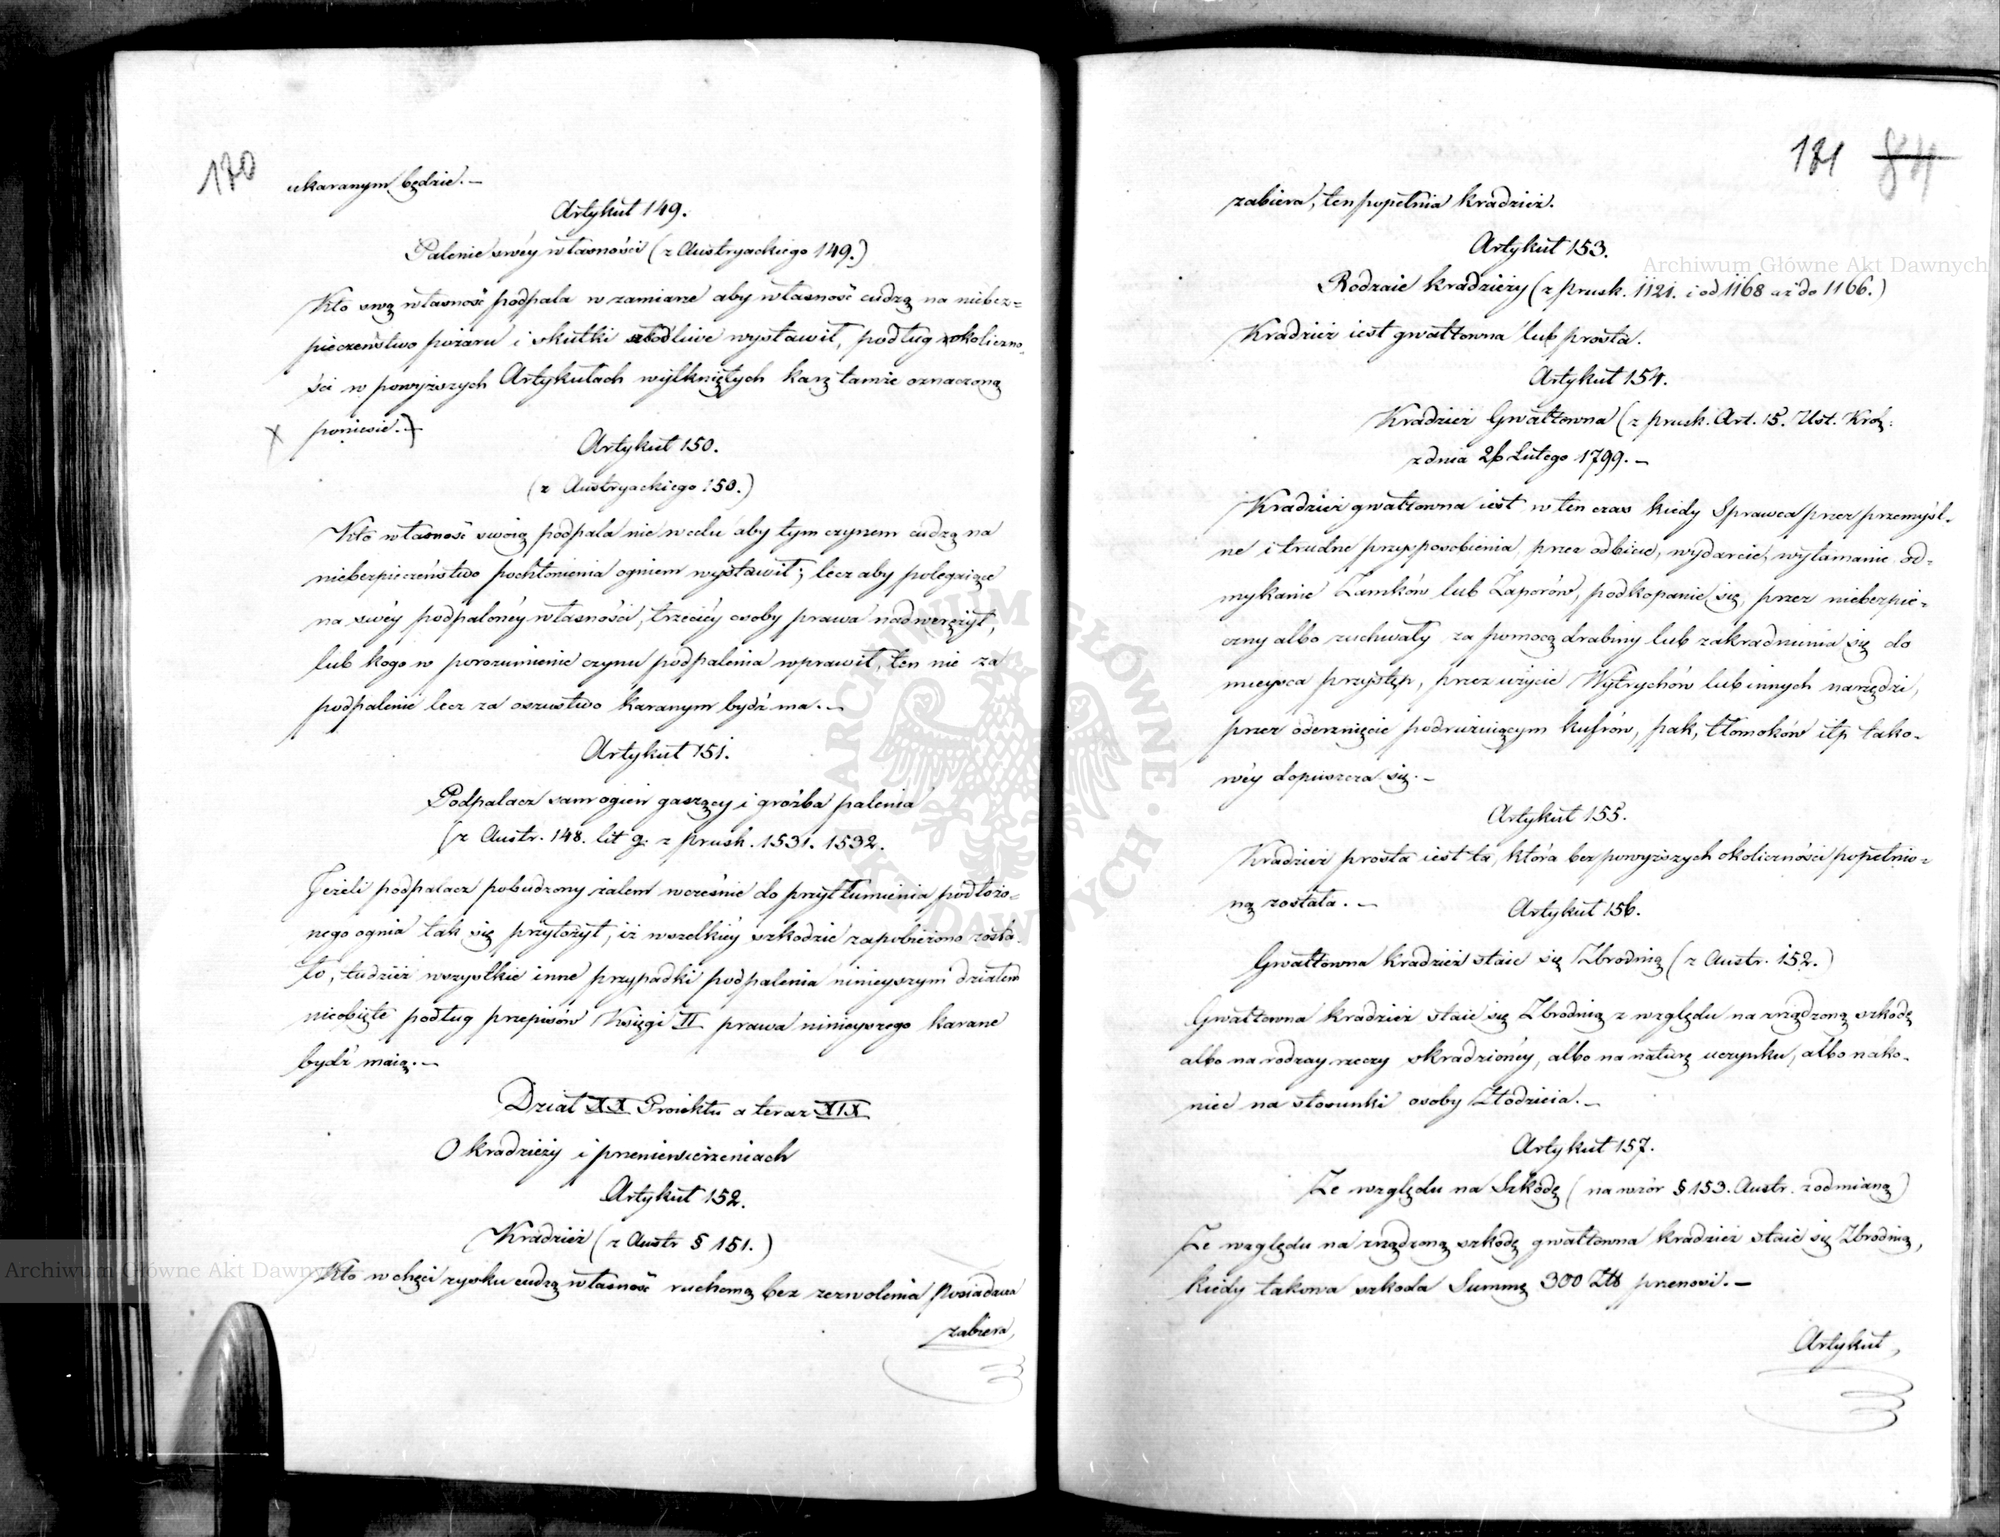 170
ukaranym będzie. —
Artykuł 149.
Palenie swéy własności (z Austryackiego 149.)
Kto swą własność podpala w zamiarze aby własność cudzą na niebez=
pieczeństwo pożaru i skutki szkodliwe wystawił, podług okoliczno=
ści w powyższych Artykułach wytkniętych karę tamże oznaczoną
poniesie. —
Artykuł 150.
(z Austryackiego 150.)
Kto własność swoią podpala nie w celu aby tym czynem cudzą na
niebezpieczeństwo pochłonienia ogniem wystawił; lecz aby polegaiące
na swéy podpalonéy własności, trzeciéy osoby prawa nadwerężył,
lub kogo w porozumienie czynu podpalenia wprawił, ten nie za
podpalenie lecz za oszustwo karanym bydź ma. —
Artykuł 151.
Podpalacz sam ogień gaszący i groźba palenia
(z Austr. 148. lit g: z prusk. 1531. 1532.
Jeżeli podpalacz pobudzony żalem wcześnie do przytłumienia podłożo=
nego ognia tak się przyłożył, iż wszelkiéy szkodzie zapobieżono zosta=
ło, tudzież wszystkie inne przypadki podpalenia ninieyszym działem
nieobięte podług przepisów Księgi II prawa ninieyszego karane
bydź maią. —
Dział XX Proiektu a teraz XIX
O kradzieży i przeniewierzeniach
Artykuł 152.
Kradzież (z Austr § 151.)
Kto w chęci zysku cudzą własność ruchomą bez zezwolenia Posiadacza
zabiera,
171 84
zabiera, ten popełnia kradzież.
Artykuł 153.
Rodzaie kradzieży (z prusk. 1121. i od 1168 aż do 1166.)
Kradzież iest gwałtowna lub prosta.
Artykuł 154.
Kradzież Gwałtowna (z prusk. Art. 15. Ust. Król:
z dnia 26 Lutego 1799. —
Kradzież gwałtowna iest w ten czas kiedy Sprawca przez przemyśl=
ne i trudne przysposobienia, przez odbicie, wydarcie, wyłamanie od=
mykanie Zamków lub Zaporów, podkopanie się, przez niebezpie=
czny albo zuchwały za pomocą drabiny lub zakradnienia się do
mieysca przystęp, przez użycie Wytrychów lub innych narzędzi,
przez oderznięcie podrużuiącym kufrów, pak, tłomoków itp tako=
wéy dopuszcza się. —
Artykuł 155.
Kradzież prosta iest ta, która bez powyższych okoliczności popełnio=
ną została. —
Artykuł 156.
Gwałtowna kradzież staie się Zbrodnią (z Austr. 152.)
Gwałtowna kradzież staie się Zbrodnią z względu na rządzoną szkodę
albo na rodzay rzeczy skradzionéy, albo na naturę uczynku, albo nako=
niec na stosunki osoby Złodzieia. —
Artykuł 157.
Ze względu na Szkodę (na wzór § 153. Austr. z odmianą)
Ze względu na rządzoną szkodę gwałtowna kradzież staie się Zbrodnią,
kiedy takowa szkoda Summę 300 Złł przenosi. —
Artykuł
Archiwum Główne Akt Dawnych
Archiwum Główne Akt Dawnych
ARCHIWUM GŁÓWNE AKT DAWNYCH